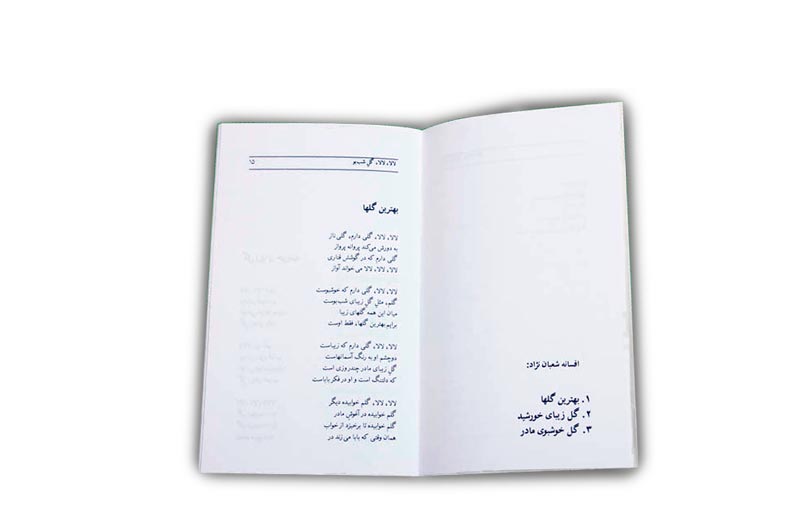 افسانه شعبان نژاد:
۱. بهترین گلها
۲. گل زیبای خورشید
۳. گل خوشبوی مادر
لالا، لالا، گل شب‌بو ۱۵
بهترین گلها
لالا، لالا، گلی دارم، گلی ناز
به دورش می‌کند پروانه پرواز
گلی دارم که در گوشش قناری
لالا، لالا، لالا می خواند آواز
لالا، لالا، گلی دارم که خوشبوست
گلم، مثل گل زیبای شب‌بوست
میان این همه گلهای زیبا
برایم بهترین گلها، فقط اوست
لالا، لالا، گلی دارم که زیباست
دو چشم او به رنگ آسمانهاست
گل زیبای مادر چند روزی است
که دلتنگ است و او در فکر باباست
لالا، لالا، گلم خوابیده دیگر
گلم خوابیده در آغوش مادر
گلم خوابیده تا برخیزد از خواب
همان وقتی که بابا می زند در